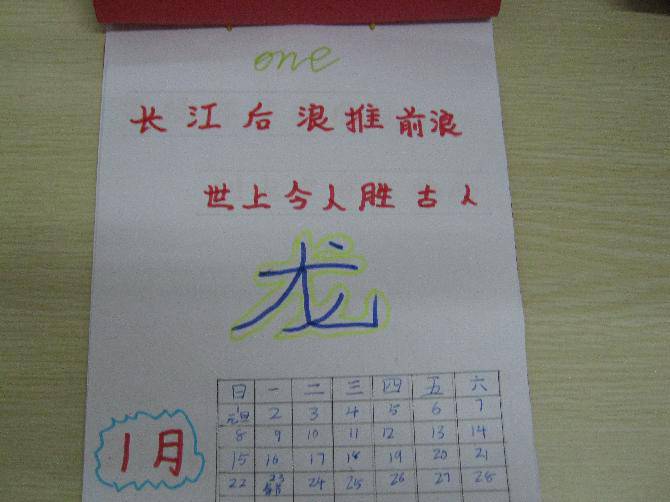 one
长江后浪推前浪
世上今人胜古人
龙
1月
日 一 二 三 四 五 六
元旦 2 3 4 5 6 7
8 9 10 11 12 13 14
15 16 17 18 19 20 21
22 23 24 25 26 27 28